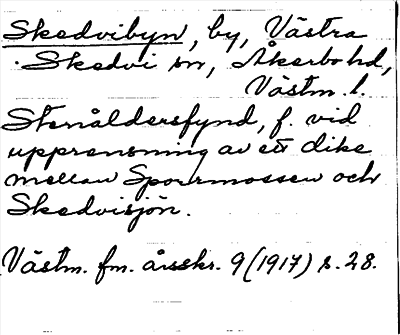 Skedvibyn, by, Västra
Skedvi sn, Åkerbo hd,
Västm. l.
Stenåldersfynd, f. vid
upprensning av ett dike
mellan Sporrmossen och
Skedvisjön.
Västm. fm. årsskr. 9 (1917) s. 28.